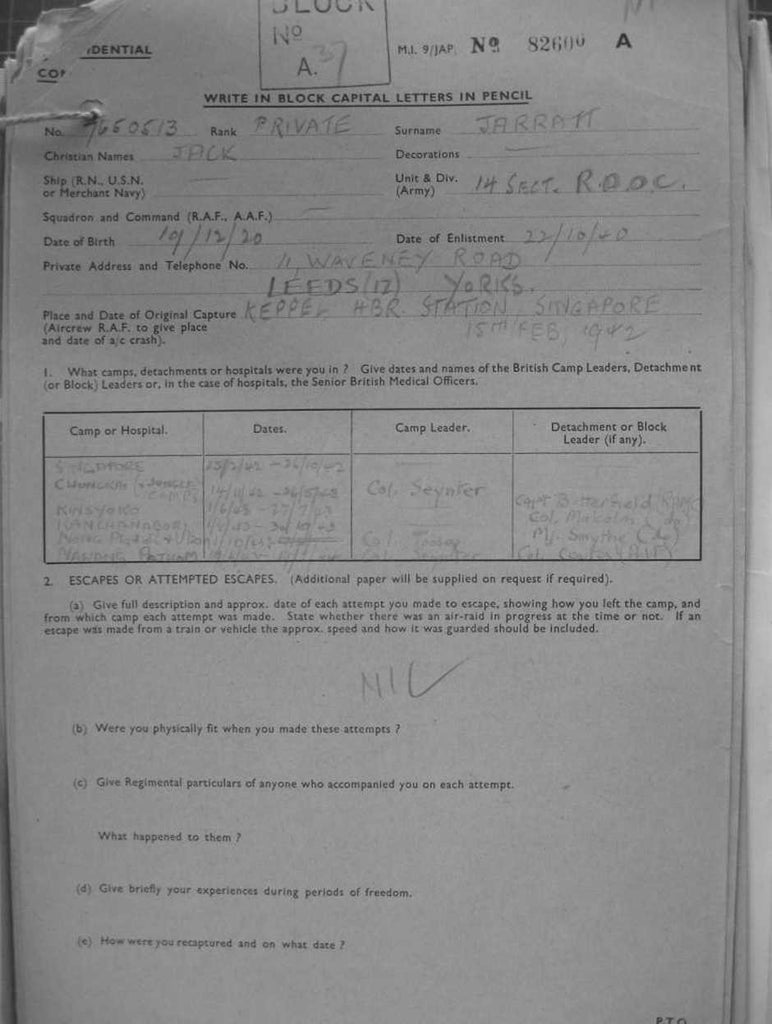 BLOCK
No
A. 37
M.I. 9/JAP. No. 82600 A
IDENTIAL
COP
WRITE IN BLOCK CAPITAL LETTERS IN PENCIL
No. 7650513 Rank PRIVATE Surname JARRATT
Christian Names JACK Decorations
Ship (R.N., U.S.N. or Merchant Navy) Unit & Div. (Army) 14 SECT. R.O.O.C.
Squadron and Command (R.A.F., A.A.F.)
Date of Birth 19/12/20 Date of Enlistment 22/10/40
Private Address and Telephone No. 11, WAVENEY ROAD
LEEDS (12) YORKS.
Place and Date of Original Capture KEPPEL HBR. STATION, SINGAPORE
(Aircrew R.A.F. to give place 15TH FEB, 1942
and date of a/c crash).
1. What camps, detachments or hospitals were you in ? Give dates and names of the British Camp Leaders, Detachment
(or Block) Leaders or, in the case of hospitals, the Senior British Medical Officers.
Camp or Hospital. Dates. Camp Leader. Detachment or Block Leader (if any).
SINGAPORE 15/2/42 - 26/10/42
CHUNGKAI Col. Seynter
KINSYOKO 1/6/43 - 27/7/43 Capt
Col. Malcolm
Col. Toosey Smythe
Col.
2. ESCAPES OR ATTEMPTED ESCAPES. (Additional paper will be supplied on request if required).
(a) Give full description and approx. date of each attempt you made to escape, showing how you left the camp, and
from which camp each attempt was made. State whether there was an air-raid in progress at the time or not. If an
escape was made from a train or vehicle the approx. speed and how it was guarded should be included.
NIL
(b) Were you physically fit when you made these attempts ?
(c) Give Regimental particulars of anyone who accompanied you on each attempt.
What happened to them ?
(d) Give briefly your experiences during periods of freedom.
(e) How were you recaptured and on what date ?
P.T.O.